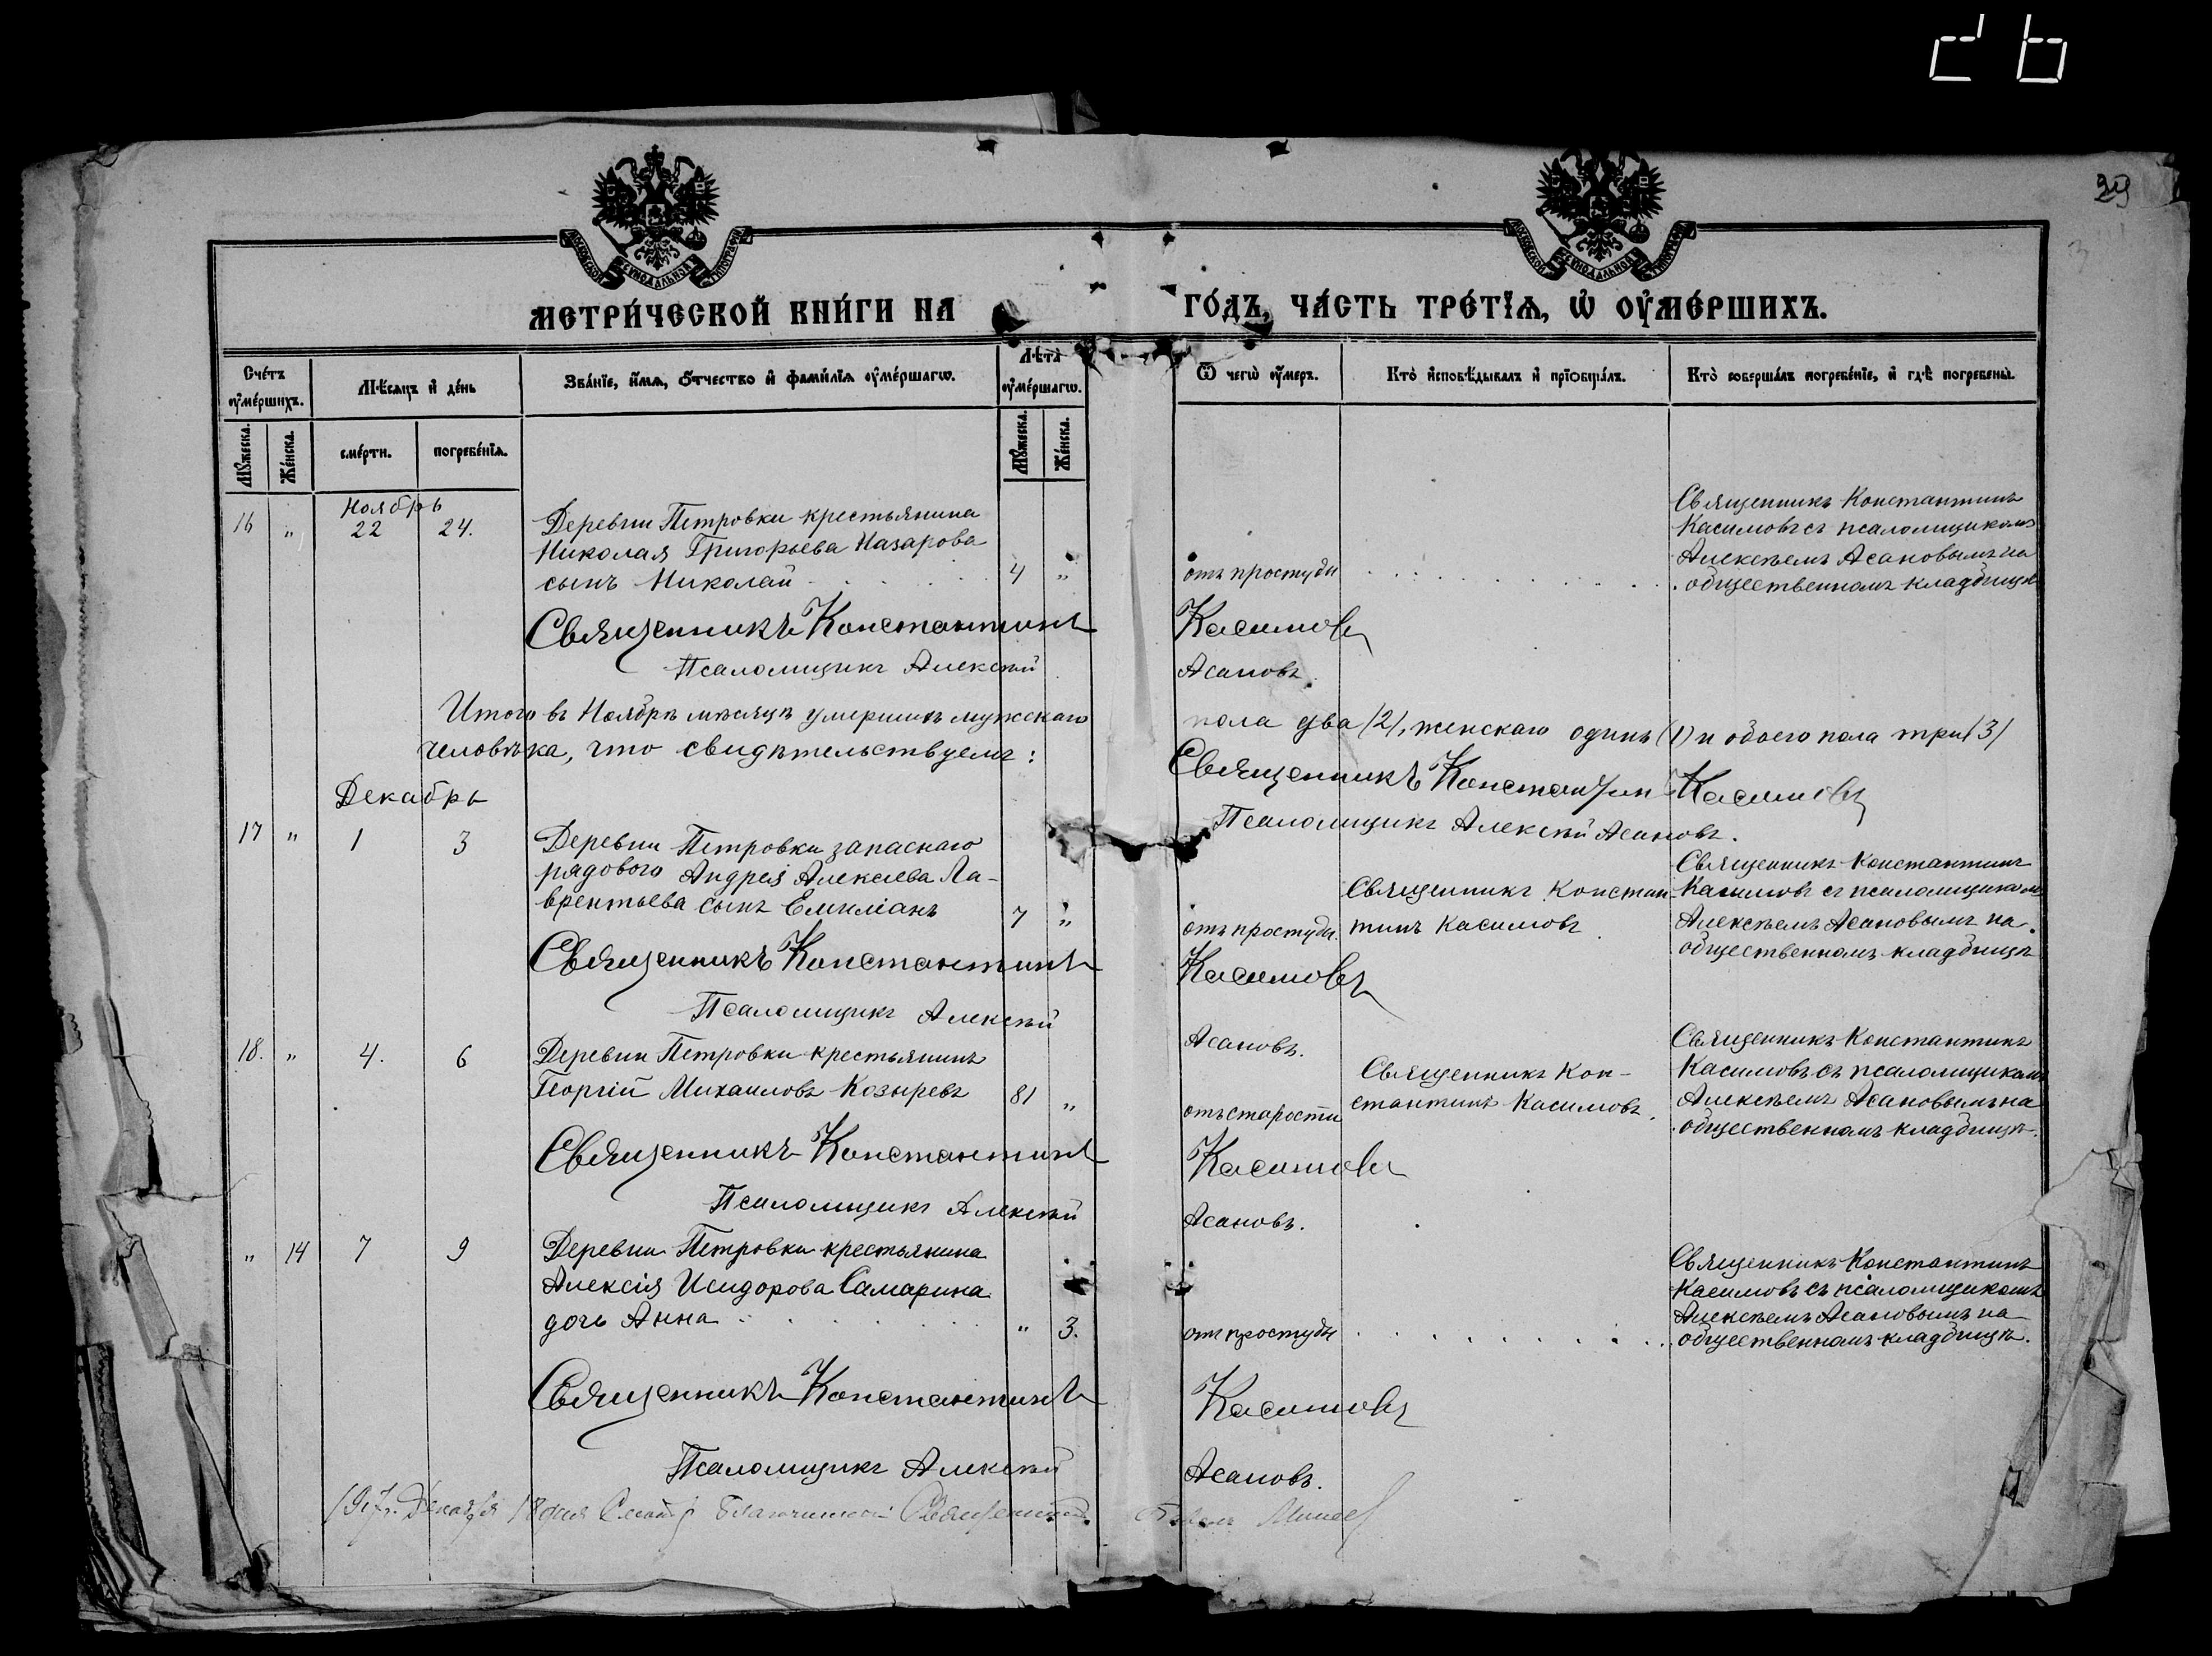 29
МЕТРИ́ЧЕСКОЙ КНИ́ГИ НА ГО́ДЪ, ЧА́СТЬ ТРЕ́ТЇѦ, Ѡ҆ ОУ҆МЕ́РШИХЪ.
Сче́тъ оу҆ме́ршихъ.
Мѣ́сѧцъ и҆ де́нь
Зва́нїе, и҆́мѧ, ѻ҆́тчество и҆ фами́лїѧ оу҆ме́ршагѡ.
Лѣ̀та оу҆ме́ршагѡ.
Ѿ чегѡ̀ оу҆́меръ.
Кто̀ и҆сповѣ́дывалъ и҆ прїѡбща́лъ.
Кто̀ соверша́лъ погребе́нїе, и҆ гдѣ̀ погребены̀.
Мꙋ́жеска.
Же́нска.
сме́рти.
погребе́нїѧ.
Мꙋ́жеска.
Же́нска.
Ноябрь
16 „ 22 24.
Деревни Петровки крестьянина
Николая Григорьева Назарова
сынъ Николай 4 „
отъ простуды
Священникъ Константинъ
Касимовъ съ псаломщикомъ
Алексѣемъ Асановымъ на
общественномъ кладбищѣ
Священникъ Константинъ Касимовъ
Псаломщикъ Алексѣй Асановъ.
Итого въ Ноябрѣ мѣсяцѣ умершихъ мужскаго пола два (2), женскаго одинъ (1) и обоего пола три (3)
человѣка, что свидѣтельствуемъ:
Священникъ Константинъ Касимовъ
Псаломщикъ Алексѣй Асановъ.
Декабрь
17 „ 1 3
Деревни Петровки запаснаго
рядового Андрея Алексѣева Ла-
врентьева сынъ Емиліанъ 7 „
отъ простуды.
Священникъ Констан-
тинъ Касимовъ
Священникъ Константинъ
Касимовъ съ псаломщикомъ
Алексѣемъ Асановымъ на
общественномъ кладбищѣ
Священникъ Константинъ Касимовъ
Псаломщикъ Алексѣй Асановъ.
18. „ 4. 6
Деревни Петровки крестьянинъ
Георгій Михаиловъ Козыревъ 81 „
отъ старости
Священникъ Кон-
стантинъ Касимовъ.
Священникъ Константинъ
Касимовъ съ псаломщикомъ
Алексѣемъ Асановымъ на
общественномъ кладбищѣ.
Священникъ Константинъ Касимовъ
Псаломщикъ Алексѣй Асановъ.
„ 14 7 9
Деревни Петровки крестьянина
Алексія Исидорова Самарина
дочь Анна „ 3.
отъ простуды
Священникъ Константинъ
Касимовъ съ псаломщикомъ
Алексѣемъ Асановымъ на
общественномъ кладбищѣ.
Священникъ Константинъ Касимовъ
Псаломщикъ Алексѣй Асановъ.
Декабря 18 дня Благочинный Священникъ